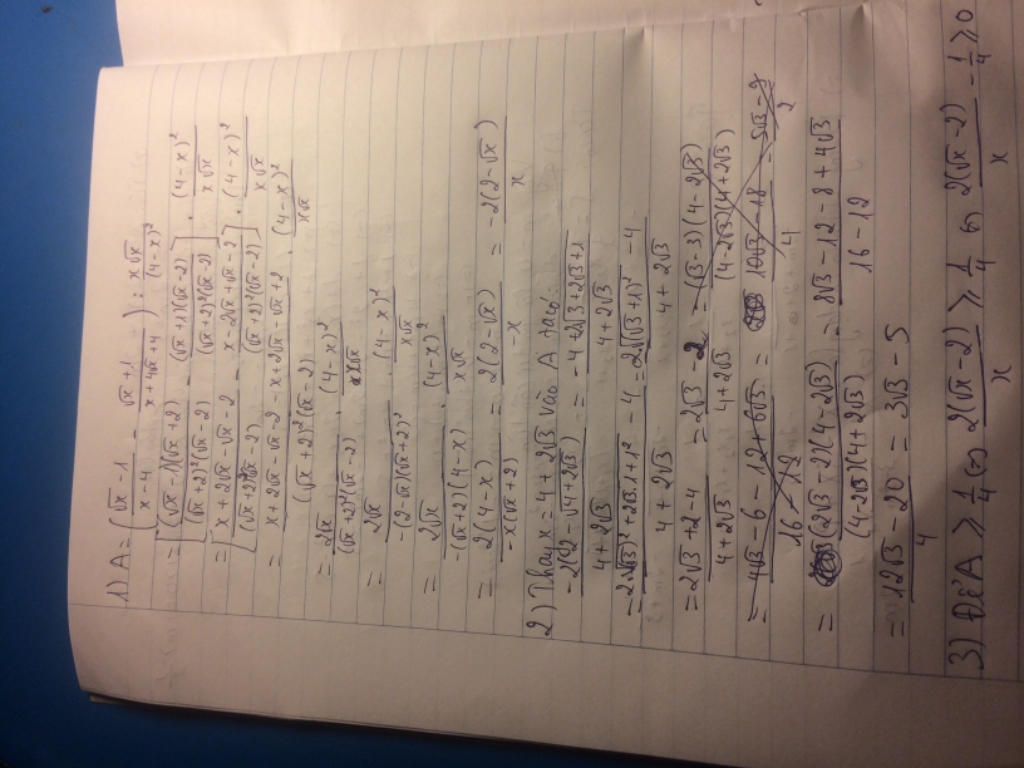 1) A = ( (√x - 1)/(x - 4) - (√x + 1)/(x + 4√x + 4) ) : (x√x)/(4 - x)²
= [ ((√x - 1)(√x + 2))/((√x + 2)²(√x - 2)) - ((√x + 1)(√x - 2))/((√x + 2)²(√x - 2)) ] . (4 - x)²/(x√x)
= [ (x + 2√x - √x - 2)/((√x + 2)²(√x - 2)) - (x - 2√x + √x - 2)/((√x + 2)²(√x - 2)) ] . (4 - x)²/(x√x)
= (x + 2√x - √x - 2 - x + 2√x - √x + 2)/((√x + 2)²(√x - 2)) . (4 - x)²/(x√x)
= 2√x/((√x + 2)²(√x - 2)) . (4 - x)²/(x√x)
= 2√x/(-(2 - √x)(√x + 2)²) . (4 - x)²/(x√x)
= 2√x/(-(√x + 2)(4 - x)) . (4 - x)²/(x√x)
= 2(4 - x)/(-x(√x + 2)) = 2(2 - √x)/(-x) = -2(2 - √x)/x
2) Thay x = 4 + 2√3 vào A ta có:
-2(2 - √(4 + 2√3))/(4 + 2√3) = (-4 + 2√(3 + 2√3 + 1))/(4 + 2√3)
= (2√((√3)² + 2√3.1 + 1²) - 4)/(4 + 2√3) = (2√((√3 + 1)²) - 4)/(4 + 2√3)
= (2√3 + 2 - 4)/(4 + 2√3) = (2√3 - 2)/(4 + 2√3)
= ((2√3 - 2)(4 - 2√3))/((4 - 2√3)(4 + 2√3)) = (8√3 - 12 - 8 + 4√3)/(16 - 12)
= (12√3 - 20)/4 = 3√3 - 5
3) Để A ≥ 1/4 (=) 2(√x - 2)/x ≥ 1/4 (=) 2(√x - 2)/x - 1/4 ≥ 0